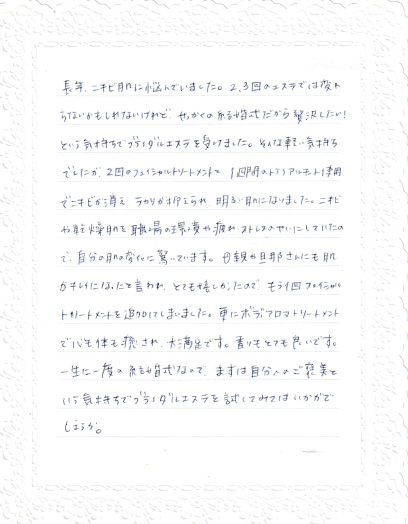 長年、ニキビ肌に悩んでいました。2、3回のエステでは変わ
らないかもしれないけれど、せっかくの結婚式だから贅沢したい!
という気持ちでブライダルエステを受けました。そんな軽い気持ち
でしたが、2回のフェイシャルトリートメントと1週間のトライアルキット使用
でニキビが消え、テカリが抑えられ、明るい肌になりました。ニキビ
や乾燥肌を職場の環境や疲れ、ストレスのせいにしていたの
で、自分の肌の変化に驚いています。母親や旦那さんにも肌
がキレイになったと言われ、とても嬉しかったので、もう1回フェイシャル
トリートメントを追加してしまいました。更にボディアロマトリートメント
で心も体も癒され、大満足です。香りもとても良いです。
一生に一度の結婚式なので、まずは自分へのご褒美と
いう気持ちでブライダルエステを試してみてはいかがで
しょうか。